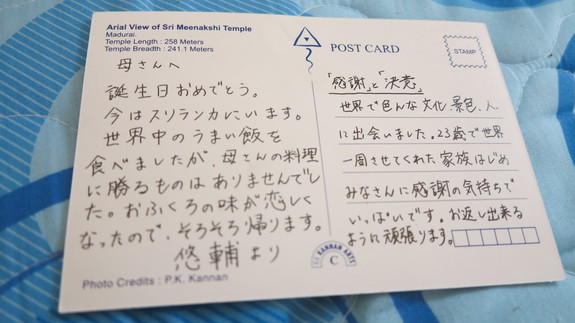 Arial View of Sri Meenakshi Temple
Madurai.
Temple Length : 258 Meters
Temple Breadth : 241.1 Meters
母さんへ
誕生日おめでとう。
今はスリランカにいます。
世界中のうまい飯を
食べましたが、母さんの料理
に勝るものはありませんでし
た。おふくろの味が恋しく
なったので、そろそろ帰ります。
悠輔より
Photo Credits : P.K. Kannan
POST CARD
STAMP
「感謝」と「決意」
世界で色んな文化、景色、人
に出会いました。23歳で世界
一周させてくれた家族はじめ
みなさんに感謝の気持ちで
いっぱいです。お返し出来る
ように頑張ります。
KANNAN ARTS
C